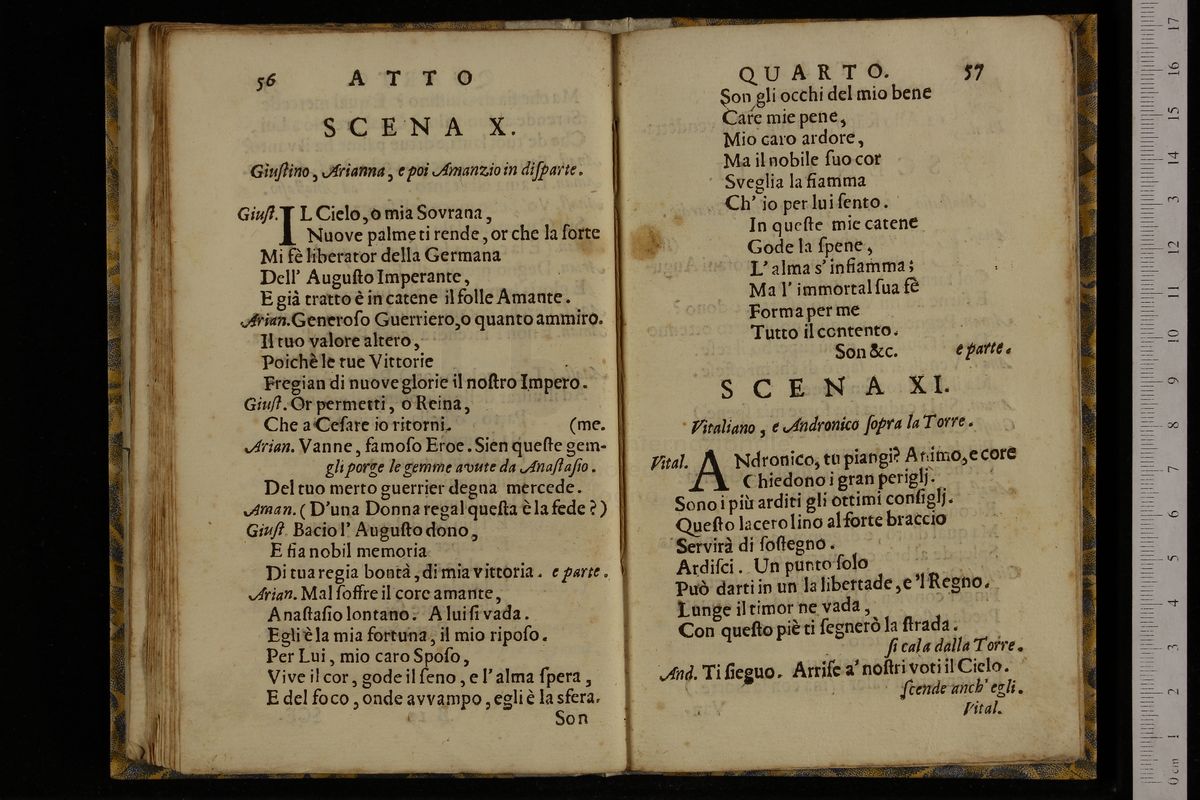 56 ATTO
SCENA X.
Giuſtino, Arianna, e poi Amanzio in diſparte.
Giuſt. IL Cielo, o mia Sovrana,
Nuove palme ti rende, or che la ſorte
Mi fè liberator della Germana
Dell' Auguſto Imperante,
E già tratto è in catene il folle Amante.
Arian. Generoſo Guerriero, o quanto ammiro.
Il tuo valore altero,
Poichè le tue Vittorie
Fregian di nuove glorie il noſtro Impero.
Giuſt. Or permetti, o Reina,
Che a Ceſare io ritorni. (me.
Arian. Vanne, famoſo Eroe. Sien queſte gem-
gli porge le gemme avute da Anaſtaſio.
Del tuo merto guerrier degna mercede.
Aman. (D'una Donna regal queſta è la fede?)
Giuſt. Bacio l' Auguſto dono,
E fia nobil memoria
Di tua regia bontà, di mia vittoria. e parte.
Arian. Mal ſoffre il core amante,
Anaſtaſio lontano. A lui ſi vada.
Egli è la mia fortuna, il mio ripoſo.
Per Lui, mio caro Spoſo,
Vive il cor, gode il ſeno, e l' alma ſpera,
E del foco, onde avvampo, egli è la sfera.
Son
QUARTO. 57
Son gli occhi del mio bene
Care mie pene,
Mio caro ardore,
Ma il nobile ſuo cor
Sveglia la fiamma
Ch' io per lui ſento.
In queſte mie catene
Gode la ſpene,
L' alma s' infiamma;
Ma l' immortal ſua fè
Forma per me
Tutto il contento.
Son &c. e parte.
SCENA XI.
Vitaliano, e Andronico ſopra la Torre.
Vital. ANdronico, tu piangi? Animo, e core
Chiedono i gran periglj.
Sono i più arditi gli ottimi conſiglj.
Queſto lacero lino al forte braccio
Servirà di ſoſtegno.
Ardiſci. Un punto ſolo
Può darti in un la libertade, e 'l Regno.
Lunge il timor ne vada,
Con queſto piè ti ſegnerò la ſtrada.
ſi cala dalla Torre.
And. Ti ſieguo. Arriſe a' noſtri voti il Cielo.
ſcende anch' egli.
Vital.